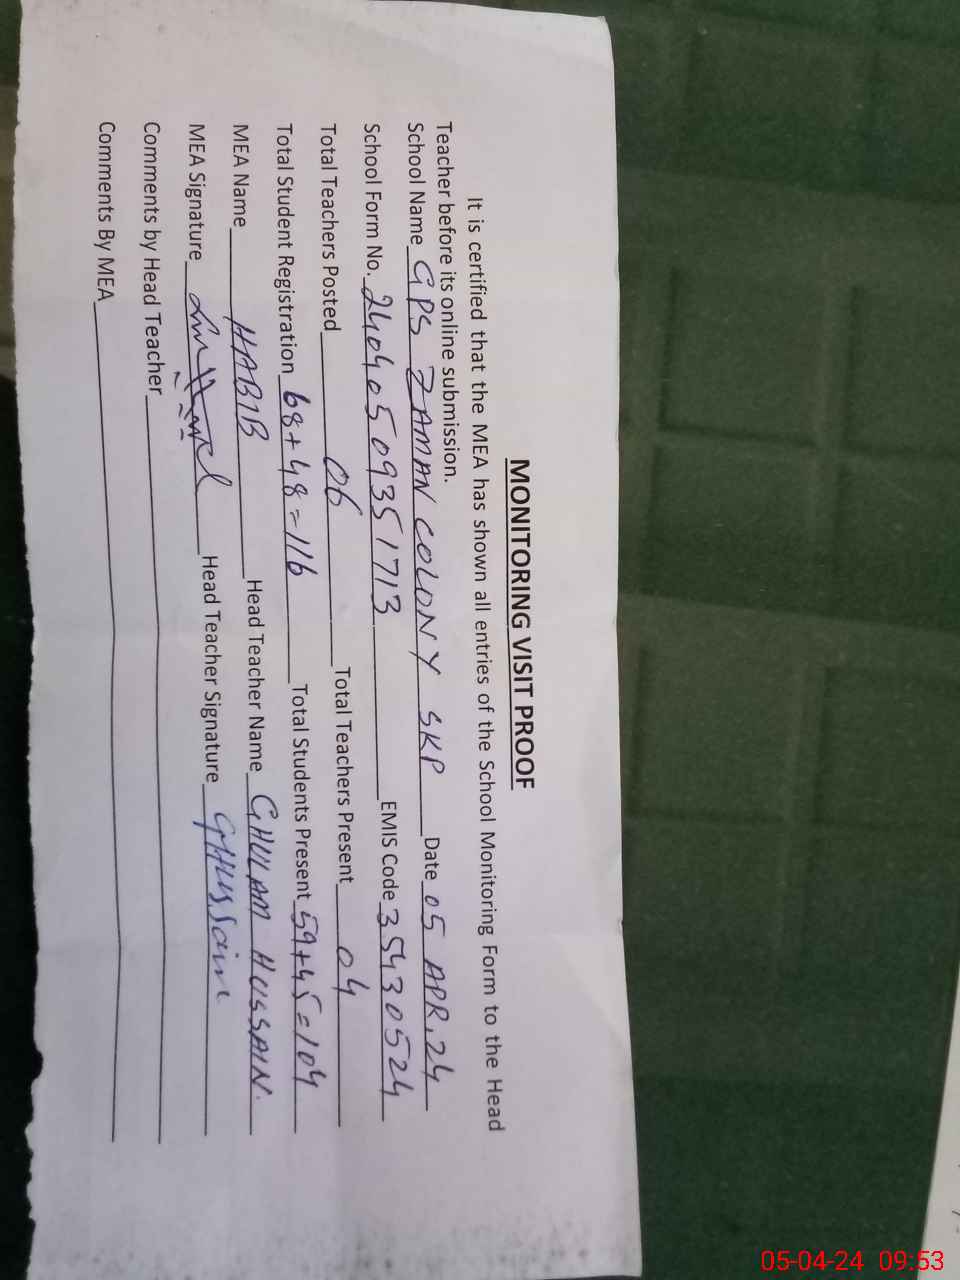 MONITORING VISIT PROOF
It is certified that the MEA has shown all entries of the School Monitoring Form to the Head
Teacher before its online submission.
School Name GPS ZAMAN COLONY SKP Date 05 APR, 24
School Form No. 24040509351713 EMIS Code 35430524
Total Teachers Posted 06 Total Teachers Present 04
Total Student Registration 68+48=116 Total Students Present 59+45=104
MEA Name HABIB Head Teacher Name GHULAM HUSSAIN.
MEA Signature Head Teacher Signature GHussain
Comments by Head Teacher
Comments By MEA
05-04-24 09:53